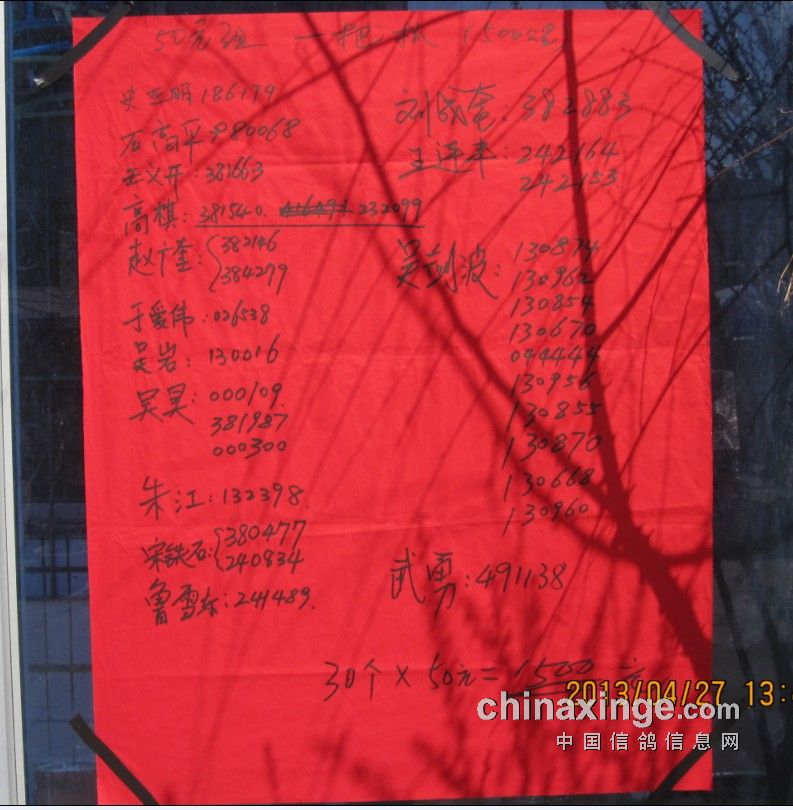 50元组 一把抓 (500公里)
史亚明 186179
石高平 980068
王义开: 381663
高棋: 381540. 416491 232099
赵广奎: 382146
384279
于爱伟: 026538
吴岩: 130016
吴昊: 000109.
381987
000300
朱江: 132398.
宋铁石: 380477
240834
鲁雪东: 241489.
刘成奎: 382883
王连丰: 242164
242153.
吴剑波: 130874
130962
130854
130670
044444
130956
130855
130870
130668
130960
武勇: 491138
30个×50元=1500元
2013/04/27 13:
chinaxinge.com
中国信鸽信息网